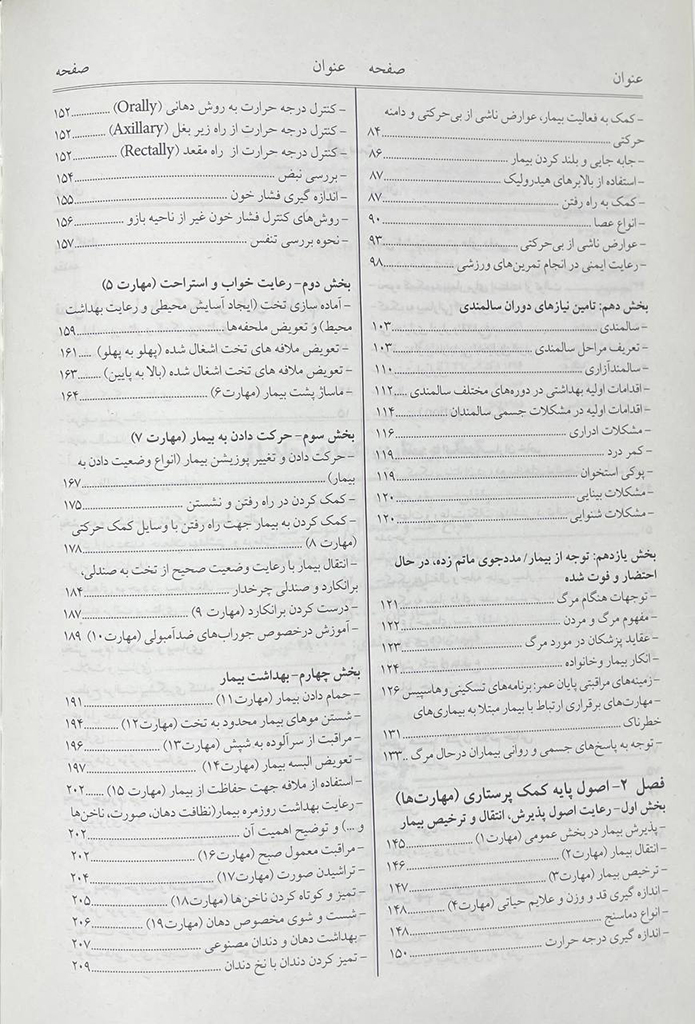 عنوان صفحه
- کمک به فعالیت بیمار، عوارض ناشی از بی‌حرکتی و دامنه
حرکتی ۸۴
- جابه جایی و بلند کردن بیمار ۸۶
- استفاده از بالابرهای هیدرولیک ۸۷
- کمک به راه رفتن ۸۷
- انواع عصا ۹۰
- عوارض ناشی از بی‌حرکتی ۹۳
- رعایت ایمنی در انجام تمرین‌های ورزشی ۹۸
بخش دهم: تامین نیازهای دوران سالمندی
- سالمندی ۱۰۳
- تعریف مراحل سالمندی ۱۰۳
- سالمندآزاری ۱۱۰
- اقدامات اولیه بهداشتی در دوره‌های مختلف سالمندی ۱۱۲
- اقدامات اولیه در مشکلات جسمی سالمندان ۱۱۴
- مشکلات ادراری ۱۱۶
- کمر درد ۱۱۹
- پوکی استخوان ۱۱۹
- مشکلات بینایی ۱۲۰
- مشکلات شنوایی ۱۲۰
بخش یازدهم: توجه از بیمار/ مددجوی ماتم زده، در حال
احتضار و فوت شده
- توجهات هنگام مرگ ۱۲۱
- مفهوم مرگ و مردن ۱۲۲
- عقاید پزشکان در مورد مرگ ۱۲۳
- انکار بیمار وخانواده ۱۲۴
- زمینه‌های مراقبتی پایان عمر: برنامه‌های تسکینی و هاسپیس ۱۲۶
- مهارت‌های برقراری ارتباط با بیمار مبتلا به بیماری‌های
خطرناک ۱۳۱
- توجه به پاسخ‌های جسمی و روانی بیماران درحال مرگ ۱۳۳
فصل ۲- اصول پایه کمک پرستاری (مهارت‌ها)
بخش اول- رعایت اصول پذیرش، انتقال و ترخیص بیمار
- پذیرش بیمار در بخش عمومی (مهارت۱) ۱۴۵
- انتقال بیمار (مهارت۲) ۱۴۶
- ترخیص بیمار (مهارت۳) ۱۴۷
- اندازه گیری قد و وزن و علایم حیاتی (مهارت۴) ۱۴۸
- انواع دماسنج ۱۴۸
- اندازه گیری درجه حرارت ۱۵۰
عنوان صفحه
- کنترل درجه حرارت به روش دهانی (Orally) ۱۵۲
- کنترل درجه حرارت از راه زیر بغل (Axillary) ۱۵۲
- کنترل درجه حرارت از راه مقعد (Rectally) ۱۵۲
- بررسی نبض ۱۵۴
- اندازه گیری فشار خون ۱۵۵
- روش‌های کنترل فشار خون غیر از ناحیه بازو ۱۵۶
- نحوه بررسی تنفس ۱۵۷
بخش دوم- رعایت خواب و استراحت (مهارت ۵)
- آماده سازی تخت (ایجاد آسایش محیطی و رعایت بهداشت
محیط) و تعویض ملحفه‌ها ۱۵۹
- تعویض ملافه های تخت اشغال شده (پهلو به پهلو) ۱۶۱
- تعویض ملافه های تخت اشغال شده (بالا به پایین) ۱۶۳
- ماساژ پشت بیمار (مهارت۶) ۱۶۴
بخش سوم- حرکت دادن به بیمار (مهارت ۷)
- حرکت دادن و تغییر پوزیشن بیمار (انواع وضعیت دادن به
بیمار) ۱۶۷
- کمک کردن در راه رفتن و نشستن ۱۷۵
- کمک کردن به بیمار جهت راه رفتن با وسایل کمک حرکتی
(مهارت ۸) ۱۷۸
- انتقال بیمار با رعایت وضعیت صحیح از تخت به صندلی،
برانکارد و صندلی چرخدار ۱۸۴
- درست کردن برانکارد (مهارت ۹) ۱۸۷
- آموزش درخصوص جوراب‌های ضدآمبولی (مهارت۱۰) ۱۸۹
بخش چهارم- بهداشت بیمار
- حمام دادن بیمار (مهارت۱۱) ۱۹۱
- شستن موهای بیمار محدود به تخت (مهارت۱۲) ۱۹۴
- مراقبت از سرآلوده به شپش (مهارت۱۳) ۱۹۶
- تعویض البسه بیمار (مهارت۱۴) ۱۹۷
- استفاده از ملافه جهت حفاظت از بیمار (مهارت ۱۵) ۲۰۲
- رعایت بهداشت روزمره بیمار(نظافت دهان، صورت، ناخن‌ها
و ...) و توضیح اهمیت آن ۲۰۲
- مراقبت معمول صبح (مهارت۱۶) ۲۰۲
- تراشیدن صورت (مهارت۱۷) ۲۰۴
- تمیز و کوتاه کردن ناخن‌ها (مهارت۱۸) ۲۰۵
- شست و شوی مخصوص دهان (مهارت۱۹) ۲۰۶
- بهداشت دهان و دندان مصنوعی ۲۰۷
- تمیز کردن دندان با نخ دندان ۲۰۹